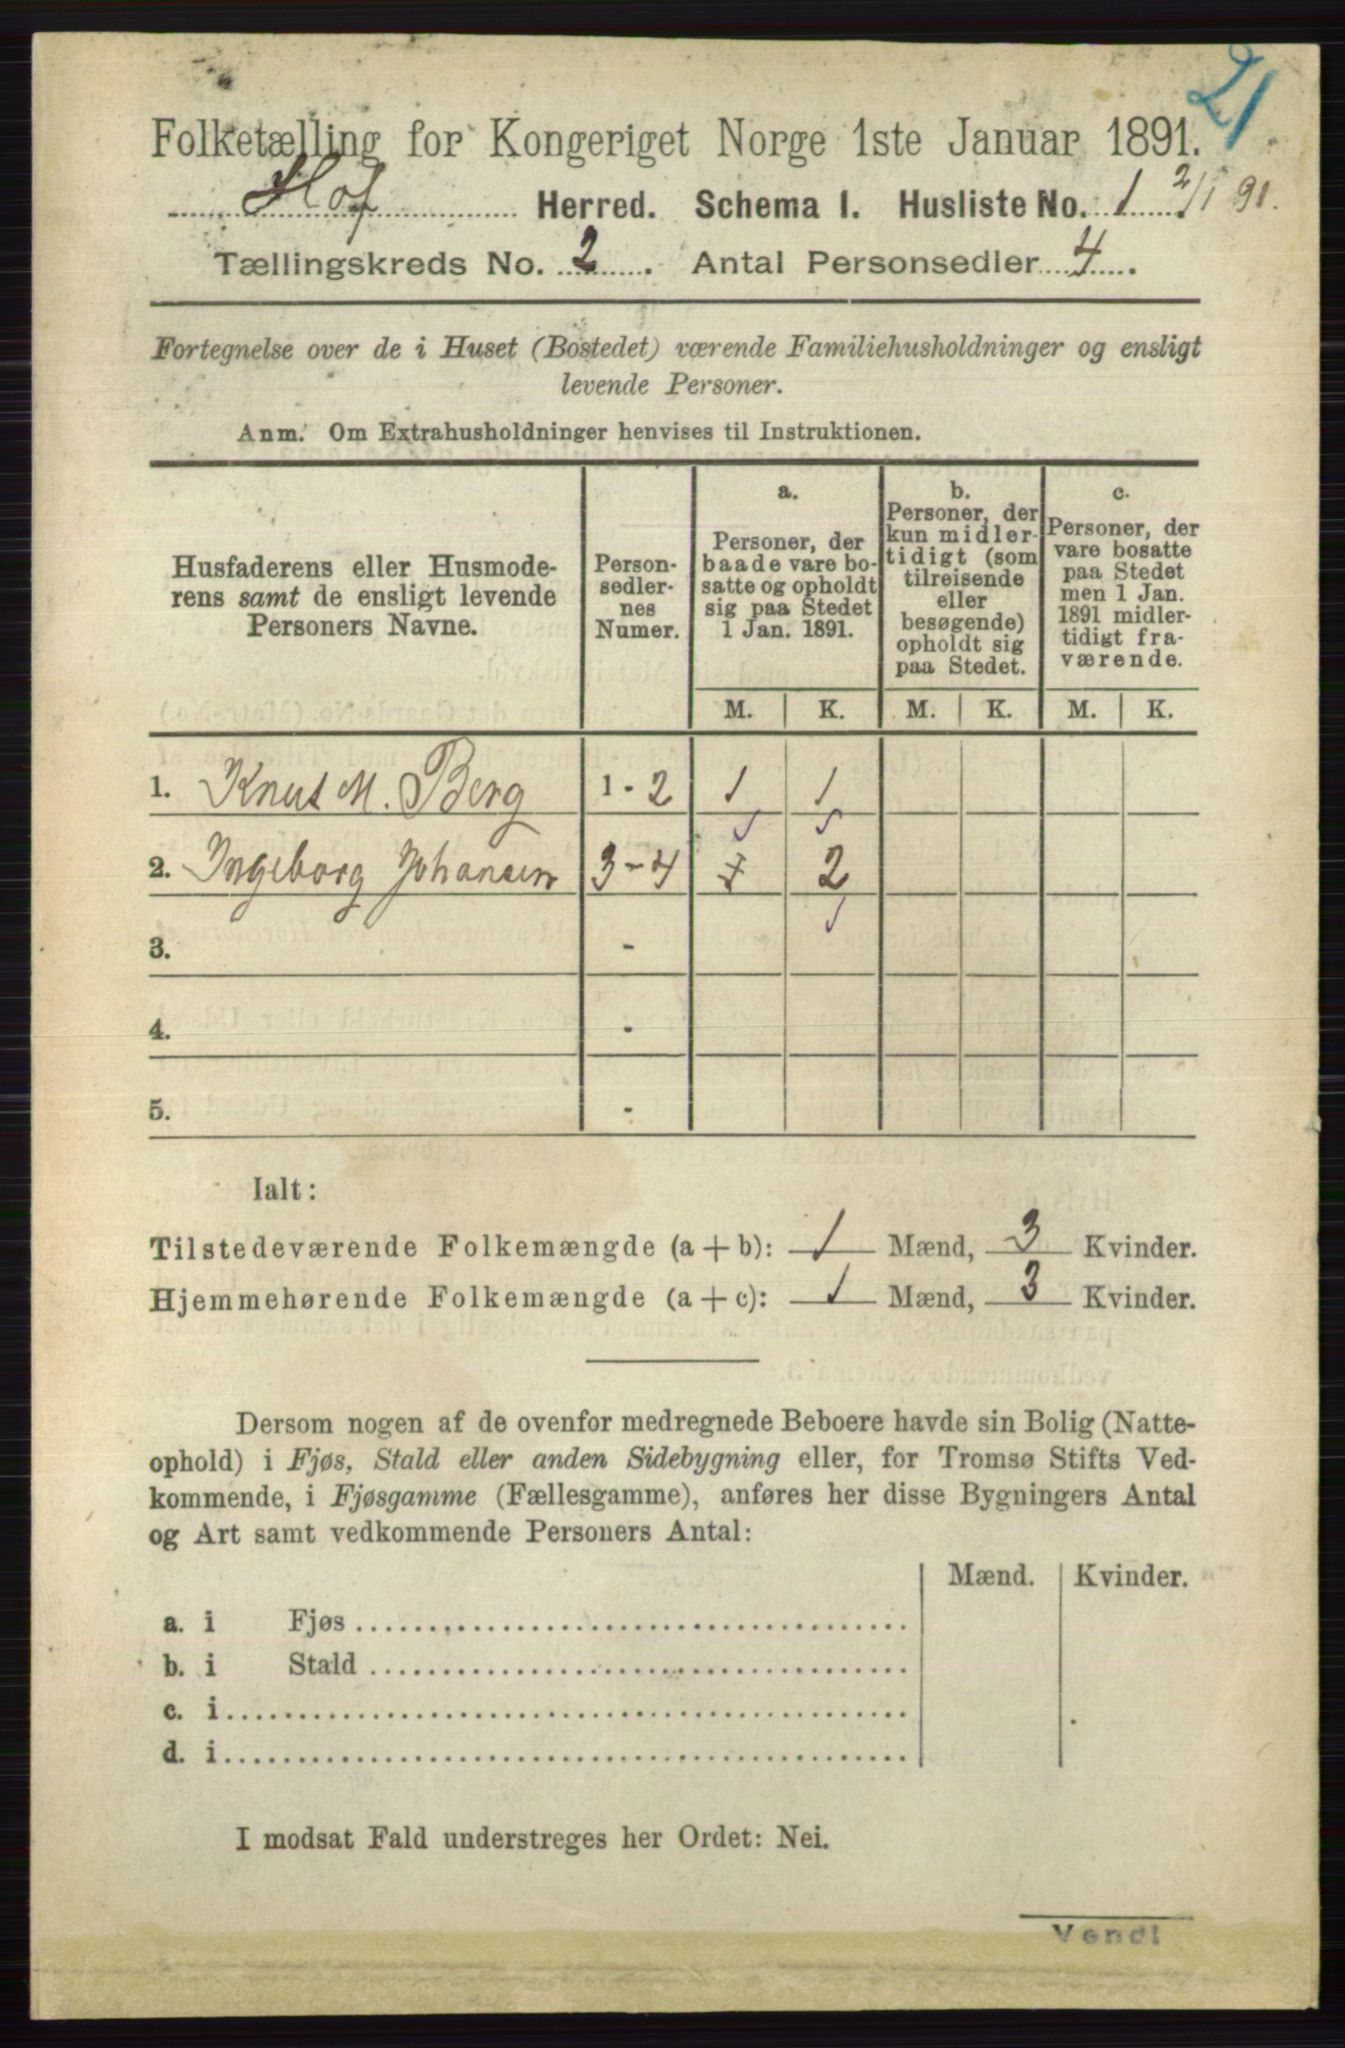 21.
Folketælling for Kongeriget Norge 1ste Januar 1891.
Hof Herred. Schema I. Husliste No. 1 2/1 91.
Tællingskreds No. 2. Antal Personsedler 4.
Fortegnelse over de i Huset (Bostedet) værende Familiehusholdninger og ensligt
levende Personer.
Anm. Om Extrahusholdninger henvises til Instruktionen.
Husfaderens eller Husmode-
rens samt de ensligt levende
Personers Navne.
Person-
sedler-
nes
Numer.
a.
Personer, der
baade vare bo-
satte og opholdt
sig paa Stedet
1 Jan. 1891.
b.
Personer, der
kun midler-
tidigt (som
tilreisende
eller
besøgende)
opholdt sig
paa Stedet.
c.
Personer, der
vare bosatte
paa Stedet
men 1 Jan.
1891 midler-
tidigt fra-
værende.
M. K. M. K. M. K.
1. Knut M. Berg 1 - 2 1 1
2. Ingeborg Johansen 3 - 4 2
3. -
4. -
5. -
Ialt:
Tilstedeværende Folkemængde (a + b): 1 Mænd, 3 Kvinder.
Hjemmehørende Folkemængde (a + c): 1 Mænd, 3 Kvinder.
Dersom nogen af de ovenfor medregnede Beboere havde sin Bolig (Natte-
ophold) i Fjøs, Stald eller anden Sidebygning eller, for Tromsø Stifts Ved-
kommende, i Fjøsgamme (Fællesgamme), anføres her disse Bygningers Antal
og Art samt vedkommende Personers Antal:
Mænd. Kvinder.
a. i Fjøs
b. i Stald
c. i
d. i
I modsat Fald understreges her Ordet: Nei.
Vend!